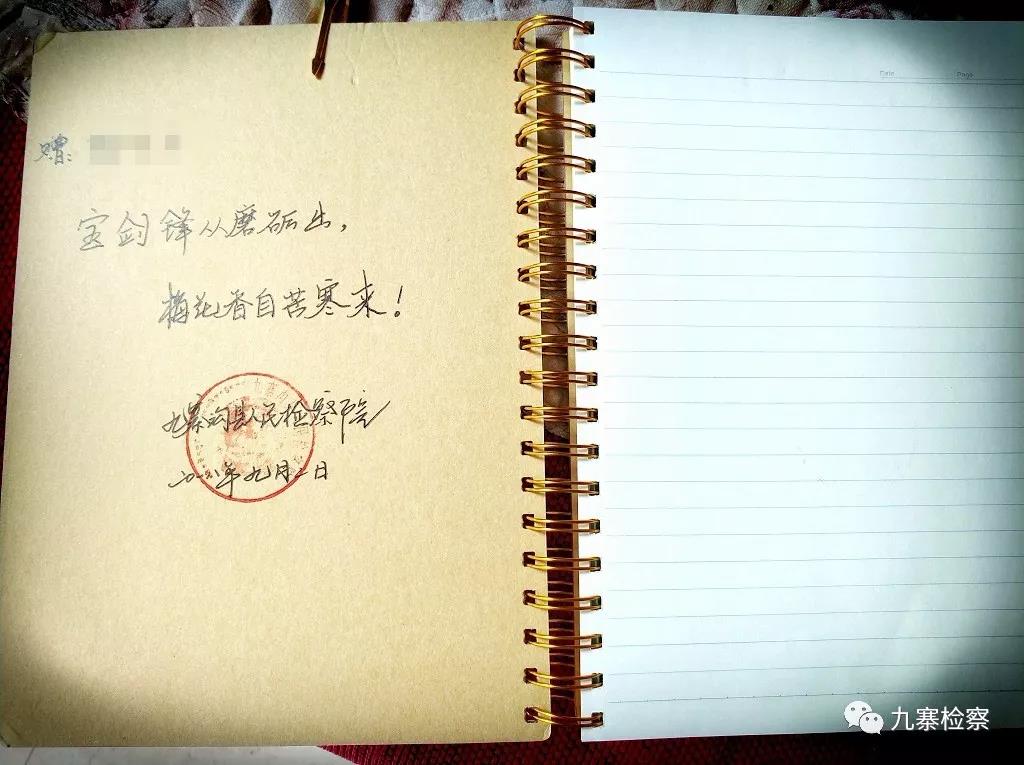 赠:
宝剑锋从磨砺出,
梅花香自苦寒来!
九寨沟县人民检察院
二〇二一年九月二日
Date
Page
九寨检察